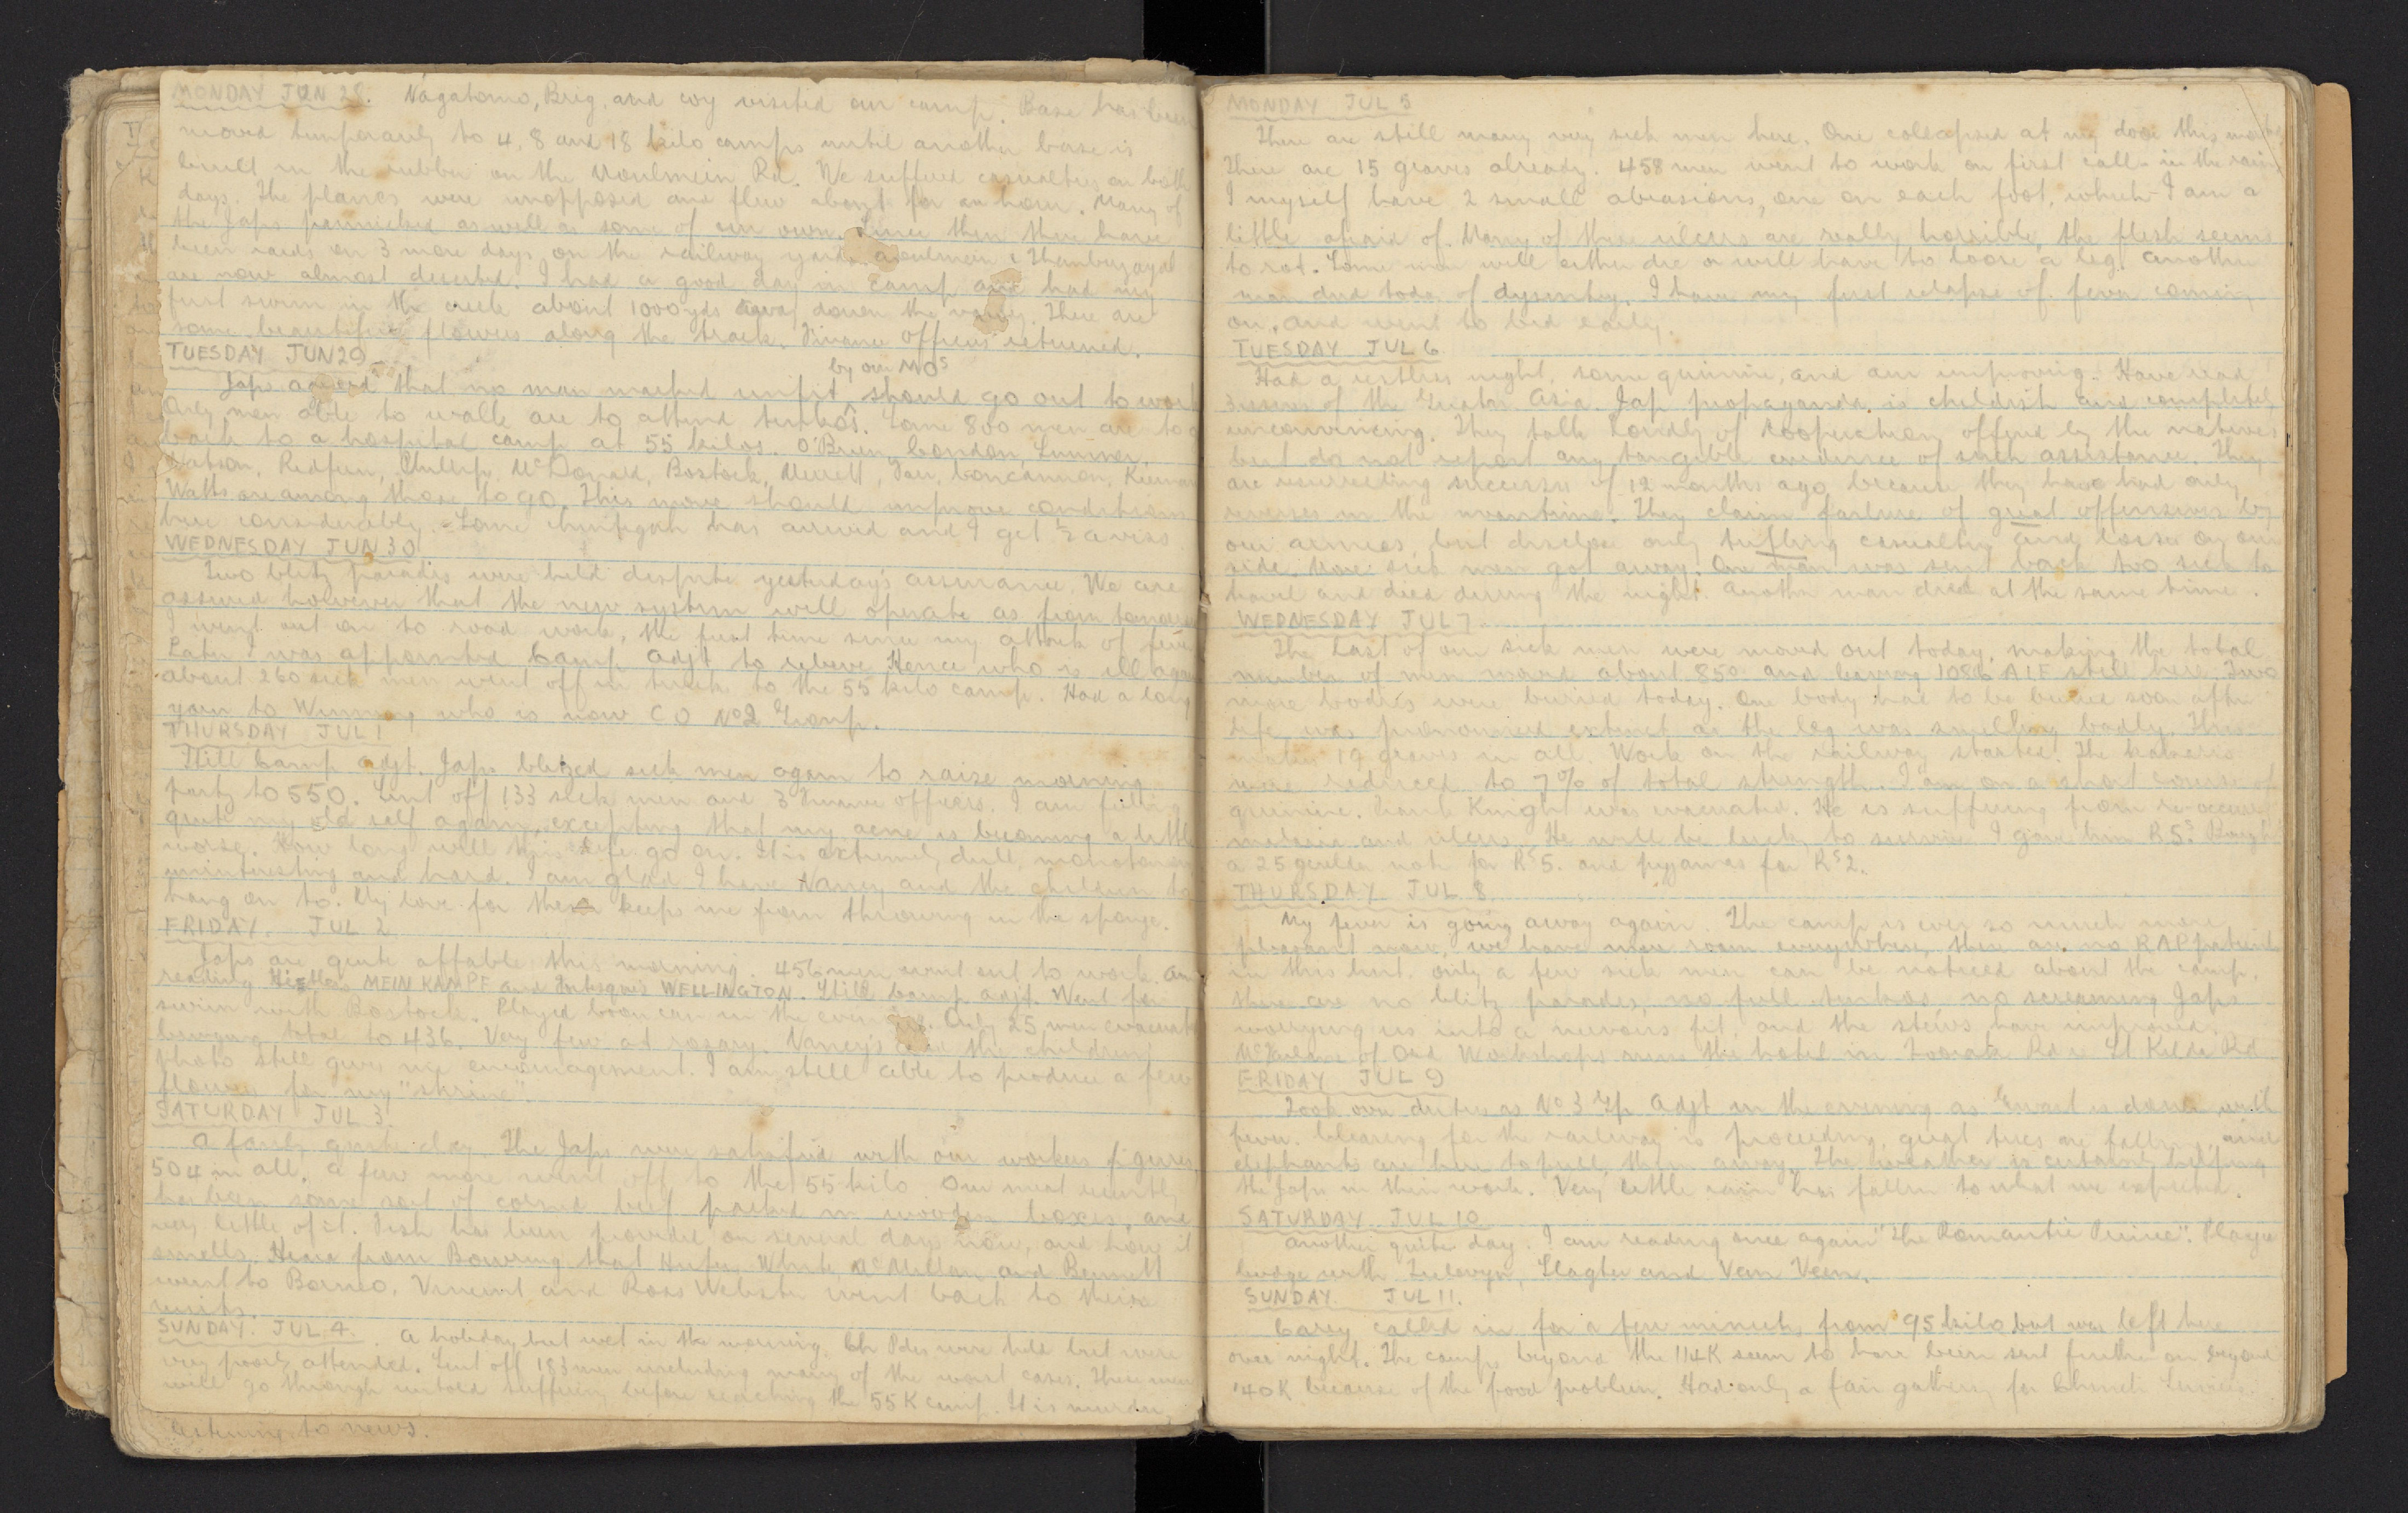 MONDAY JUN 28. Nagatomo, Brig. and coy visited our camp. Base has been
moved temporarily to 4, 8 and 18 kilo camps until another base is
built in the rubber on the Moulmein Rd. We suffered casualties on both
days. The planes were unopposed and flew about for an hour. Many of
the Japs panicked as well as some of our own. Since then there have
been raids on 3 more days on the railway yards. Moulmein & Thanbuzayat
are now almost deserted. I had a good day in camp and had my
first swim in the creek about 1000 yds away down the valley. There are
some beautiful flowers along the track. Finance officers returned.
TUESDAY JUN 29
by our MOs
Japs agreed that no man marked unfit should go out to work
Only men able to walk are to attend tenkos. Some 800 men are to go
back to a hospital camp at 55 kilos. O'Brien, Condon,
Watson, Redfern, Phillip, McDonald, Bostock, Merrett, Concannon,
Watts are among those to go. This move should improve conditions
here considerably. Some has arrived and I get ½ a
WEDNESDAY JUN 30
Two blitz parades were held despite yesterday's assurance. We are
assured however that the new system will operate as from tomorrow
I went out on to road work, the first time since my attack of fever
Later I was appointed Camp Adjt to relieve Hence who is ill again
about 260 sick men went off in trucks to the 55 kilo camp. Had a long
yarn to Winning who is now CO No 2 Group.
THURSDAY JUL 1
Still Camp Adjt. Japs blitzed sick men again to raise morning
party to 550. Sent off 133 sick men and 3 Finance officers. I am feeling
quite my old self again, excepting that my acne is becoming a little
worse. How long will this life go on. It is extremely dull, monotonous
uninteresting and hard. I am glad I have Nancy and the children to
hang on to. My love for them keeps me from throwing in the sponge.
FRIDAY. JUL 2
Japs are quite affable this morning. 456 men went out to work. Am
reading Hitler's MEIN KAMPF and WELLINGTON. Still Camp Adjt. Went for
swim with Bostock. Played in the evening. Only 25 men evacuated
bringing total to 436. Very few at rosary. Nancy's and the children's
photo still gives me encouragement. I am still able to produce a few
flowers for my "shrine".
SATURDAY JUL 3.
A fairly quiet day. The Japs were satisfied with our workers figures,
504 in all. A few more went off to the 55 kilo. Our meat recently
has been some sort of corned beef packed in wooden boxes, and
very little of it. Fish has been provided on several days now, and how it
smells. Hear from Bowring that White, McMillan and Bennett
went to Borneo. Vincent and Ross Webster went back to their
units.
SUNDAY. JUL 4. A holiday but wet in the morning. Ch Pdes were held but were
very poorly attended. Sent off 183 men including many of the worst cases. These men
will go through untold suffering before reaching the 55K camp. It is murder,
listening to news.
MONDAY JUL 5
There are still many very sick men here. One collapsed at my door this morning
There are 15 graves already. 458 men went to work on first call in the rain.
I myself have 2 small abrasions, one on each foot, which I am a
little afraid of. Many of these ulcers are really horrible, the flesh seems
to rot. Some men will either die or will have to loose a leg. Another
man died today of dysentery. I have my first relapse of fever coming
on, and went to bed early.
TUESDAY JUL 6
Had a restless night, some quinine, and am improving. Have read
3 issues of the Greater Asia. Jap propaganda is childish and completely
unconvincing. They talk loudly of cooperation offered by the natives
but do not report any tangible evidence of such assistance. They
are rereading successes of 12 months ago because they have had only
reverses in the meantime. They claim failure of great offensives by
our armies, but disclose only trifling casualties and losses on our
side. More sick men got away. One man was sent back too sick to
travel and died during the night. Another man died at the same time.
WEDNESDAY JUL 7.
The last of our sick men were moved out today, making the total
number of men moved about 850 and leaving 1086 AIF still here. Two
more bodies were buried today. One body had to be buried soon after
life was pronounced extinct as the leg was smelling badly. This
makes 19 graves in all. Work on the railway started. The
were reduced to 7% of total strength. I am on a short course of
quinine. Knight was evacuated. He is suffering from
malaria and ulcers. He will be lucky to survive. I gave him Rs5. Bought
a 25 guilder note for Rs5. and pyjamas for Rs2.
THURSDAY JUL 8.
My fever is going away again. The camp is ever so much more
pleasant now, we have more room everywhere, there are no RAP patients
in this hut. Only a few sick men can be noticed about the camp.
there are no blitz parades, no full tenkos, no screaming Japs
worrying us into a nervous fit, and the stews have improved.
of Ord Workshops runs the hotel in Toorak Rd & St Kilda Rd
FRIDAY JUL 9
Took over duties as No 3 Gp Adjt in the evening as Ewart is down with
fever. Clearing for the railway is proceeding, great trees are falling, and
elephants are here to pull them away. The weather is certainly helping
the Japs in their work. Very little rain has fallen to what we expected.
SATURDAY JUL 10
Another quiet day. I am reading once again "The Romantic Prince". Played
bridge with Slagter and Van Veen.
SUNDAY. JUL 11.
Carey called in for a few minutes from 95 kilo but was left here
over night. The camps beyond the 114K seem to have been sent further on beyond
140K because of the food problem. Had only a fair gathering for Church Service.